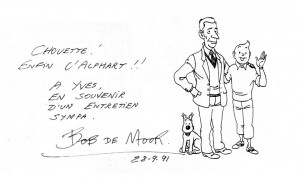 CHOUETTE!
ENFIN L'ALPHART!!
A YVES,
EN SOUVENIR
D'UN ENTRETIEN
SYMPA.
BOB DE MOOR.
28-9.91